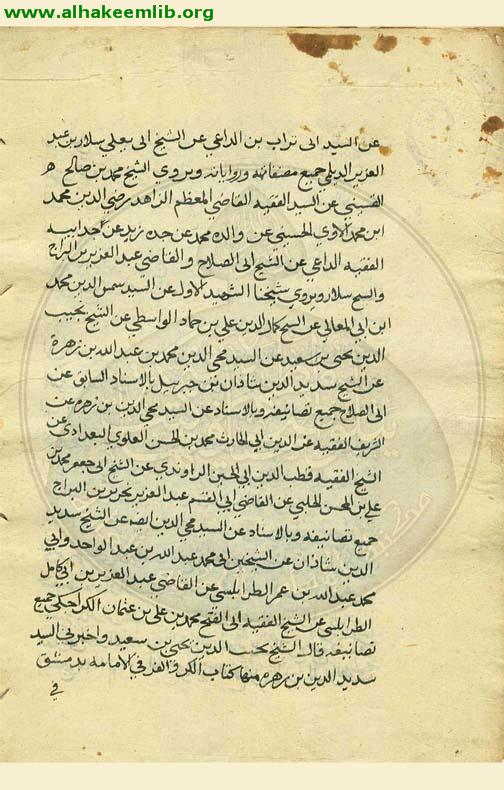 www.alhakeemlib.org
عن السيد ابى تراب بن الداعي عن الشيخ ابى يعلي سلار بن عبد
العزيز الديلمي جميع مصنفاته ورواياته ويروي الشيخ محمد بن صالح
القسيني عن السيد الفقيه القاضي المعظم الزاهد رضي الدين محمد
ابن محمد الاوي الحسيني عن والده محمد عن جده زيد عن جد ابيه
الفقيه الداعي عن الشيخ ابى الصلاح و القاضي عبد العزيز بن البراج
والشيخ سلار ويروي شيخنا الشهيد الاول عن السيد شمس الدين محمد
ابن ابي المعالي عن الشيخ كمال الدين علي بن حماد الواسطي عن الشيخ نجيب
الدين يحيى بن سعيد عن السيد محي الدين محمد بن عبد الله بن زهرة
عن الشيخ سديد الدين شاذان بن جبرئيل بالاسناد السابق عن
ابى الصلاح جميع تصانيفه وبالاسناد عن السيد محي الدين بن زهره عن
الشريف الفقيه عز الدين ابي الحارث محمد بن الحسن العلوي البغدادي عن
الشيخ الفقيه قطب الدين ابي الحسين الراوندي عن الشيخ ابى جعفر محمد بن
علي بن المحسن الحلبي عن القاضي ابي القسم عبد العزيز بن نحرير بن البراج
جميع تصانيفه وبالاسناد عن السيد محي الدين عن الشيخ سديد
الدين شاذان عن الشيخين ابى محمد عبد الله بن عبد الواحد وابي
محمد عبد الله بن عمر الطرابلسي عن القاضي عبد العزيز بن ابي كامل
الطرابلسي عن الشيخ الفقيه ابى الفتح محمد بن علي بن عثمان الكراجكي جميع
تصانيفه قال الشيخ نجيب الدين يحيى بن سعيد واخبرني السيد
الدين بن زهره منها كتاب الكر والفر في الامامه بدمشق
في